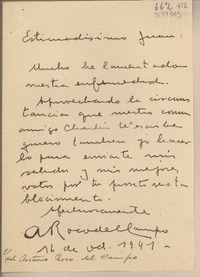 662 412
Estimadísimo Juan:
Mucho he lamentado
nuestra enfermedad.
Aprovechando la circuns
tancia que nuestro común
amigo te escribe
quiero también yo hacer
lo para enviarte mis
saludos y mis mejores
votos por tu pronto resta
blecimiento.
Afectuosamente
A Roco del Campo
16 de oct. 1941-
Antonio Roco del Campo